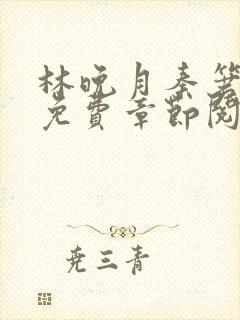 林晚月秦箫
免费章节阅
尧三青